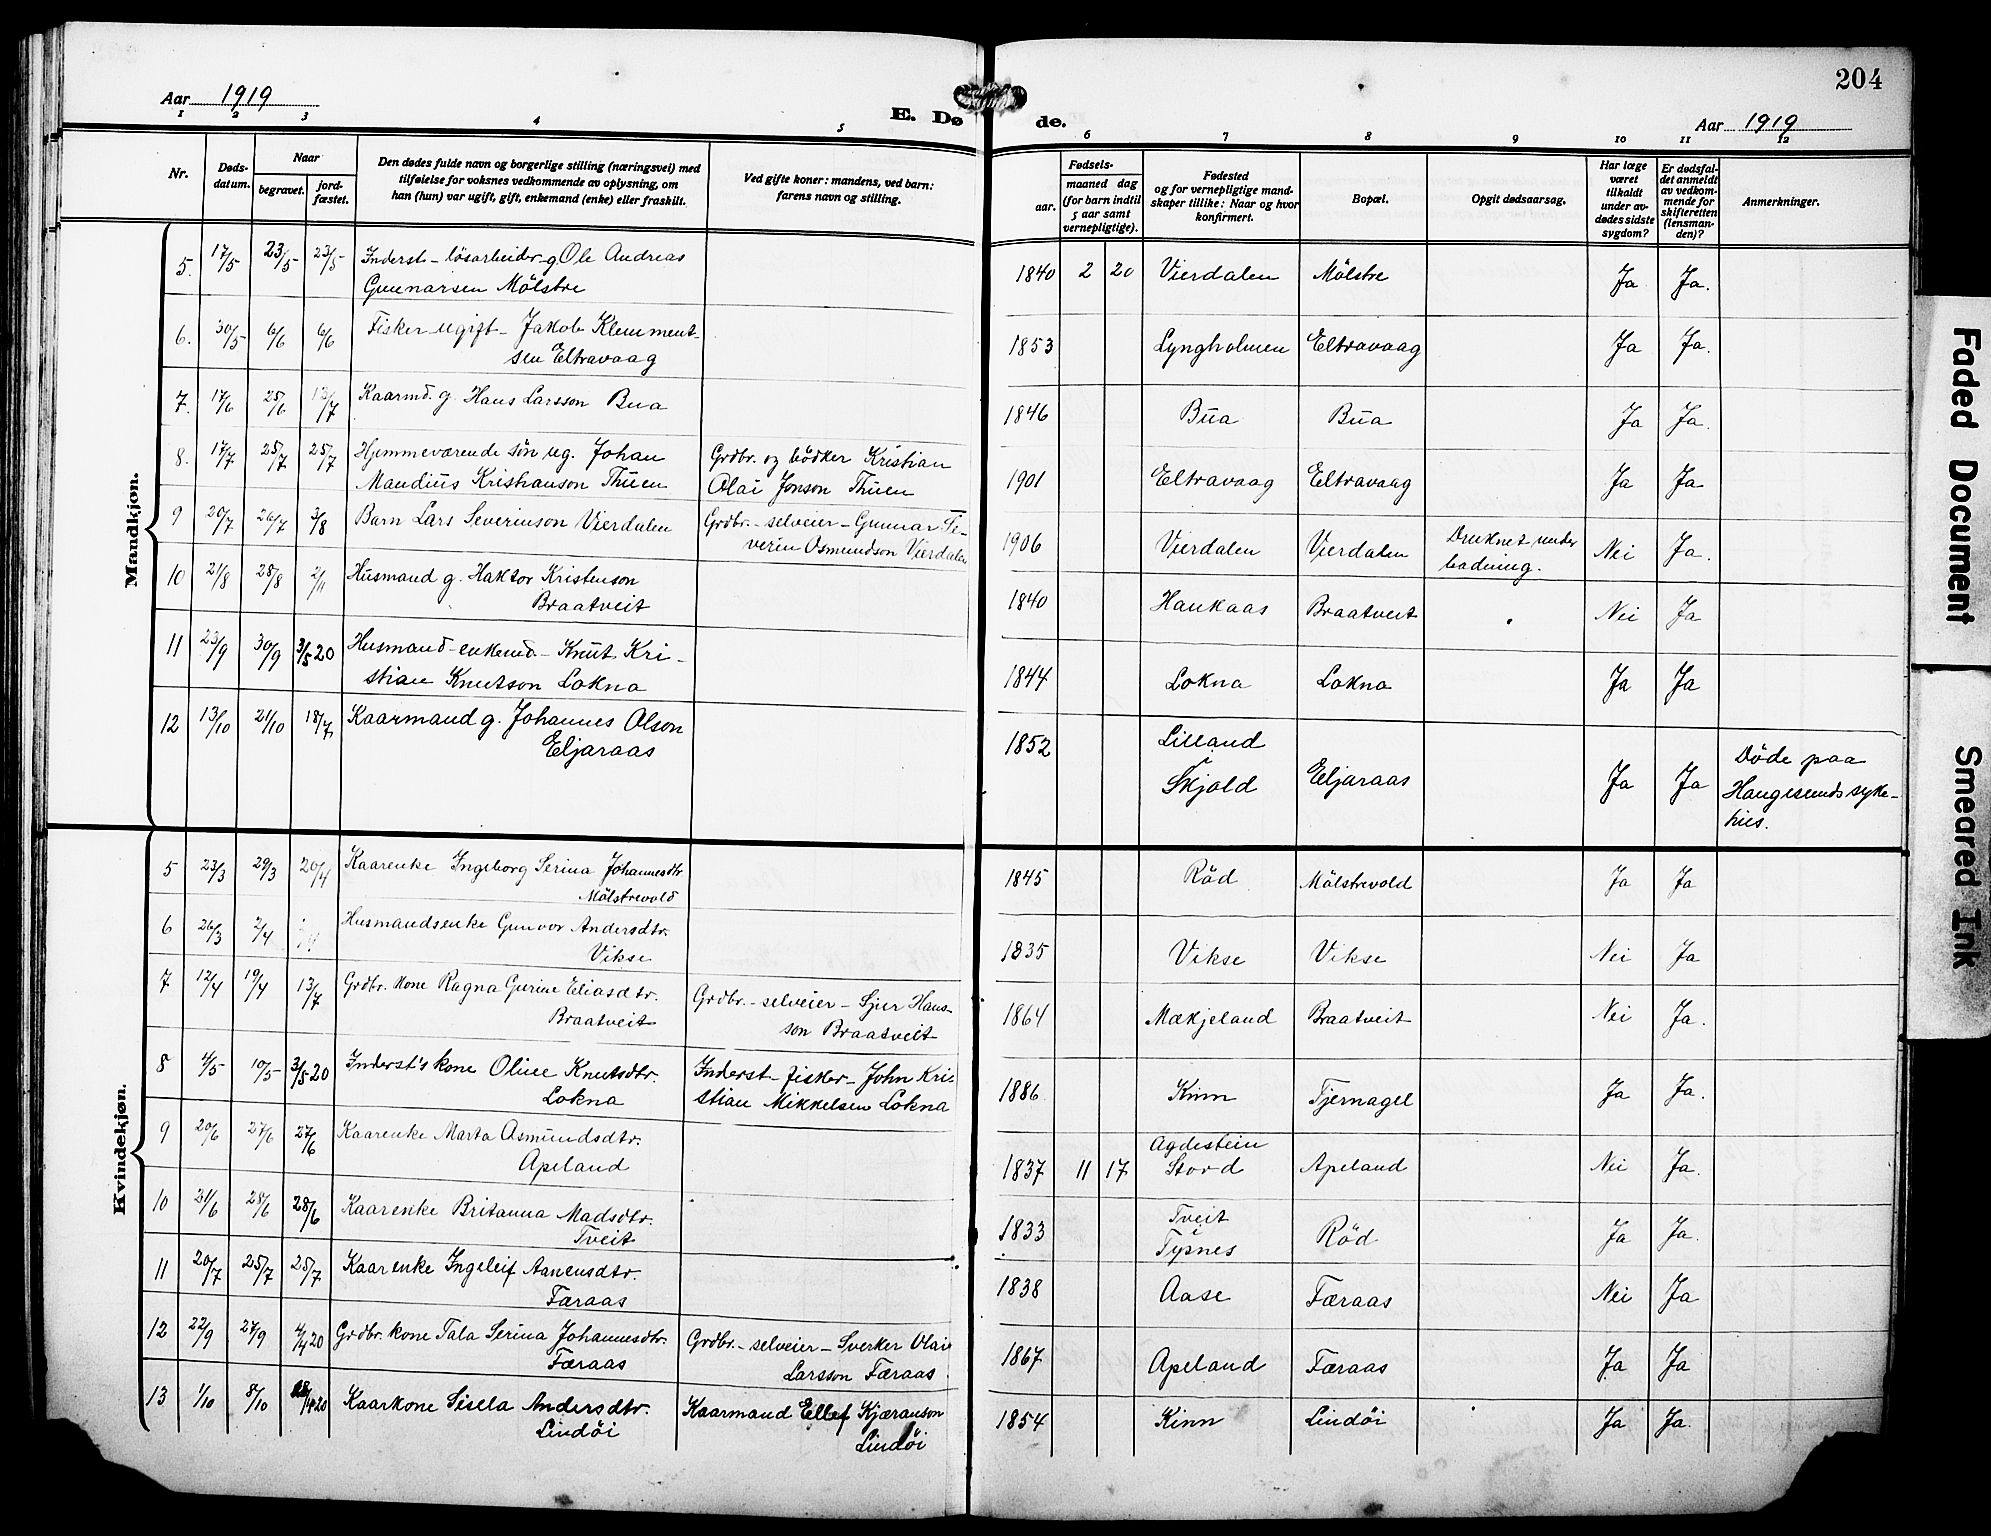 204
Aar 1919
E. Døde.
Aar 1919
1 2 3 4 5 6 7 8 9 10 11 12
Nr.
Døds-datum.
Naar
begravet.
jord-fæstet.
Den dødes fulde navn og borgerlige stilling (næringsvei) med
tilføielse for voksnes vedkommende av oplysning, om
han (hun) var ugift, gift, enkemand (enke) eller fraskilt.
Ved gifte koner: mandens, ved barn:
farens navn og stilling.
Fødsels-
aar.
maaned dag
(for barn indtil
5 aar samt
vernepligtige).
Fødested
og for vernepligtige mand-
skaper tillike: Naar og hvor
konfirmert.
Bopæl.
Opgit dødsaarsag.
Har læge
været
tilkaldt
under av-
dødes sidste
sygdom?
Er dødsfal-
det anmeldt
av vedkom-
mende for
skifteretten
(lensman-
den)?
Anmerkninger.
Mandkjøn.
5. 17/5 23/5 23/5 Inderst - løsarbeider g. Ole Andreas 1840 2 20 Vierdalen Mölstre Ja Ja.
Gunnarsen Mölstre
6. 30/5 6/6 6/6 Fisker - ugift - Jakob Klemment- 1853 Lyngholmen Eltravaag Ja Ja.
sen Eltravaag
7. 17/6 25/6 13/7 Kaarmd. g. Hans Larsson Bua 1846 Bua Bua Ja Ja.
8. 17/7 25/7 25/7 Hjemmeværende søn ug. Johan Grdbr. og bödker Kristian 1901 Eltravaag Eltravaag Ja Ja
Mandius Kristianson Thuen Olai Jonson Thuen
9 20/7 26/7 3/8 Barn Lars Severinson Vierdalen Grdbr. - selveier - Gunnar Se- 1906 Vierdalen Vierdalen Druknet under Nei Ja.
verin Osmundson Vierdalen badning.
10 21/8 28/8 2/11 Husmand g. Haktor Kristenson 1840 Haukaas Braatveit Nei Ja
Braatveit
11 23/9 30/9 3/5 20 Husmand - enkemd. - Knut Kri- 1844 Lokna Lokna Ja Ja
stian Knutson Lokna
12 13/10 21/10 18/7 Kaarmand g. Johannes Olson 1852 Lilland Eljaraas Ja Ja Döde paa
Eljaraas Skjold Haugesunds syke-
hus.
Kvindekjøn.
5 23/3 29/3 20/4 Kaarenke Ingeborg Serina Johannesdtr 1845 Röd Mölstrevold Ja Ja
Mölstrevold
6 26/3 2/4 Husmandsenke Gunvor Andersdtr. 1835 Vikse Vikse Nei Ja
Vikse
7 12/4 19/4 13/7 Grdbr. kone Ragna Gurine Eliasdtr. Grdbr. - selveier - Sjur Hans- 1864 Mækjeland Braatveit Nei Ja.
Braatveit son Braatveit
8 4/5 10/5 3/5 20 Inderst's kone Oline Knutsdtr. Inderst - fisker - John Kri- 1886 Kinn Tjernagel Ja Ja.
Lokna stian Mikkelsen Lokna
9 20/6 27/6 27/6 Kaarenke Marta Osmundsdtr. 1837 11 17 Agdestein Apeland Nei Ja.
Apeland Stord
10 21/6 28/6 28/6 Kaarenke Britanna Madsdtr. 1833 Tveit i Röd Ja Ja.
Tveit Tysnes
11 20/7 25/7 25/7 Kaarenke Ingeleif Aanensdtr. 1838 Aase Færaas Nei Ja
Færaas
12 22/9 27/9 4/4 20 Grdbr. kone Tala Serina Johannesdtr. Grdbr. - selveier - Sverker Olai 1867 Apeland Færaas Ja Ja
Færaas Larsson Færaas
13 1/10 8/10 Kaarkone Sisela Andersdtr. Kaarmand Ellef Kjæranson 1854 Kinn Lindöi Ja Ja.
Lindöi Lindöi
Faded Document
Smeared Ink